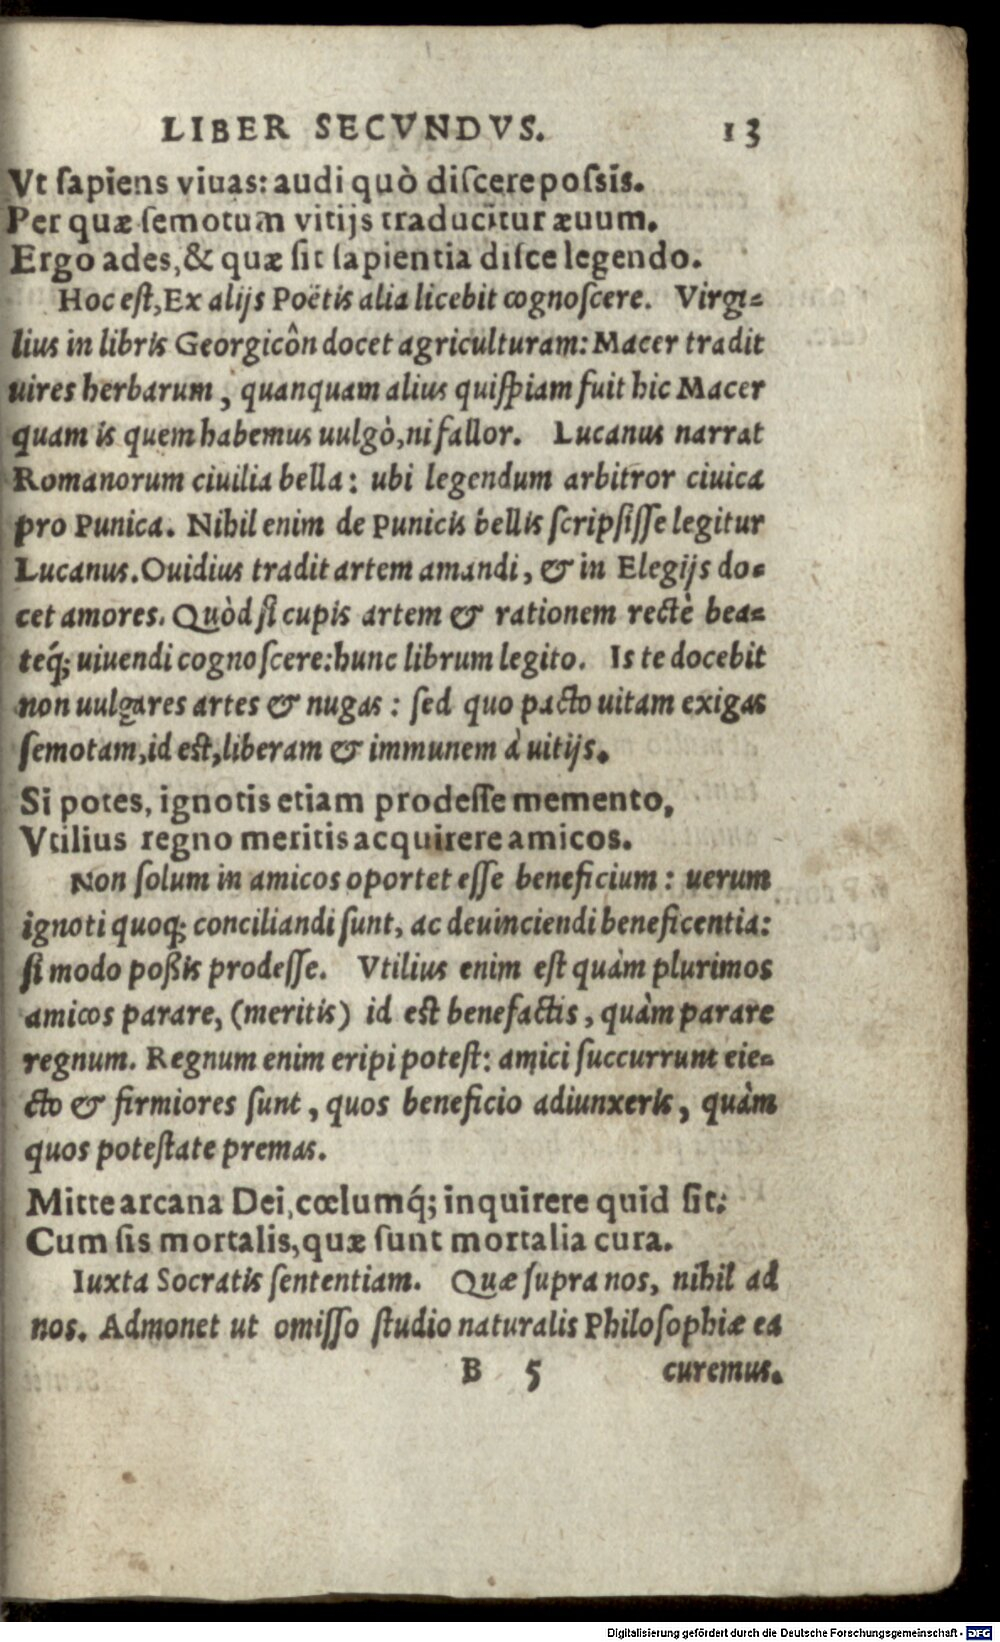 LIBER SECVNDVS. 13
Vt ſapiens viuas: audi quò diſcere poſsis.
Per quæ ſemotum vitijs traducitur æuum.
Ergo ades, & quæ ſit ſapientia diſce legendo.
Hoc eſt, Ex alijs Poëtis alia licebit cognoſcere. Virgi-
lius in libris Georgicôn docet agriculturam: Macer tradit
uires herbarum, quanquam alius quiſpiam fuit hic Macer
quam is quem habemus uulgò, ni fallor. Lucanus narrat
Romanorum ciuilia bella: ubi legendum arbitror ciuica
pro Punica. Nihil enim de Punicis bellis ſcripſiſſe legitur
Lucanus. Ouidius tradit artem amandi, & in Elegijs do-
cet amores. Quòd ſi cupis artem & rationem rectè bea-
teq́; uiuendi cognoſcere: hunc librum legito. Is te docebit
non uulgares artes & nugas: ſed quo pacto uitam exigas
ſemotam, id eſt, liberam & immunem à uitijs.
Si potes, ignotis etiam prodeſſe memento,
Vtilius regno meritis acquirere amicos.
Non ſolum in amicos oportet eſſe beneficium: uerum
ignoti quoq; conciliandi ſunt, ac deuinciendi beneficentia:
ſi modo poßis prodeſſe. Vtilius enim eſt quàm plurimos
amicos parare, (meritis) id eſt benefactis, quàm parare
regnum. Regnum enim eripi poteſt: amici ſuccurrunt eie-
cto & firmiores ſunt, quos beneficio adiunxeris, quàm
quos poteſtate premas.
Mitte arcana Dei, cœlumq́; inquirere quid ſit:
Cum ſis mortalis, quæ ſunt mortalia cura.
Iuxta Socratis ſententiam. Quæ ſupra nos, nihil ad
nos. Admonet ut omiſſo ſtudio naturalis Philoſophiæ ea
B 5 curemus.
Digitalisierung gefördert durch die Deutsche Forschungsgemeinschaft - DFG